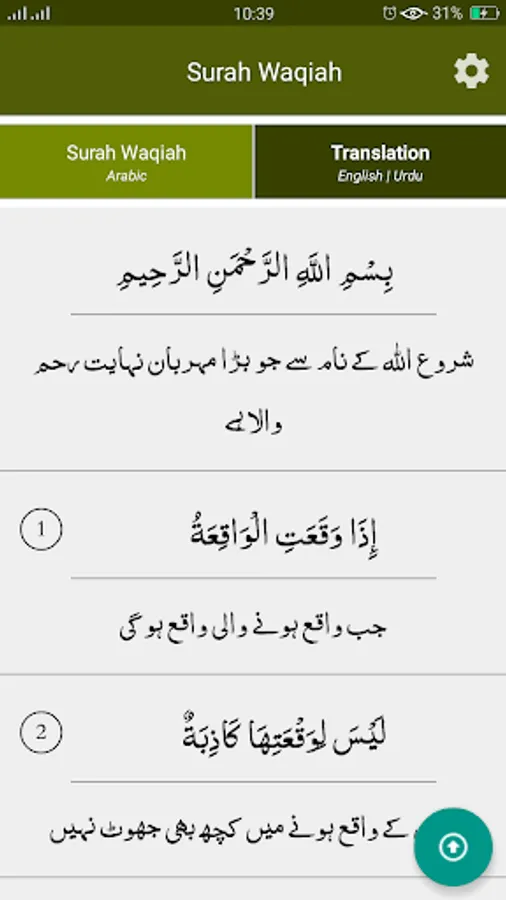 10:39
31%
Surah Waqiah
Surah Waqiah
Arabic
Translation
English | Urdu
بِسْمِ اللَّهِ الرَّحْمَنِ الرَّحِيمِ
شروع الله کے نام سے جو بڑا مہربان نہایت رحم
والا ہے
1
إِذَا وَقَعَتِ الْوَاقِعَةُ
جب واقع ہونے والی واقع ہو گی
2
لَيْسَ لِوَقْعَتِهَا كَاذِبَةٌ
کے واقع ہونے میں کچھ بھی جھوٹ نہیں